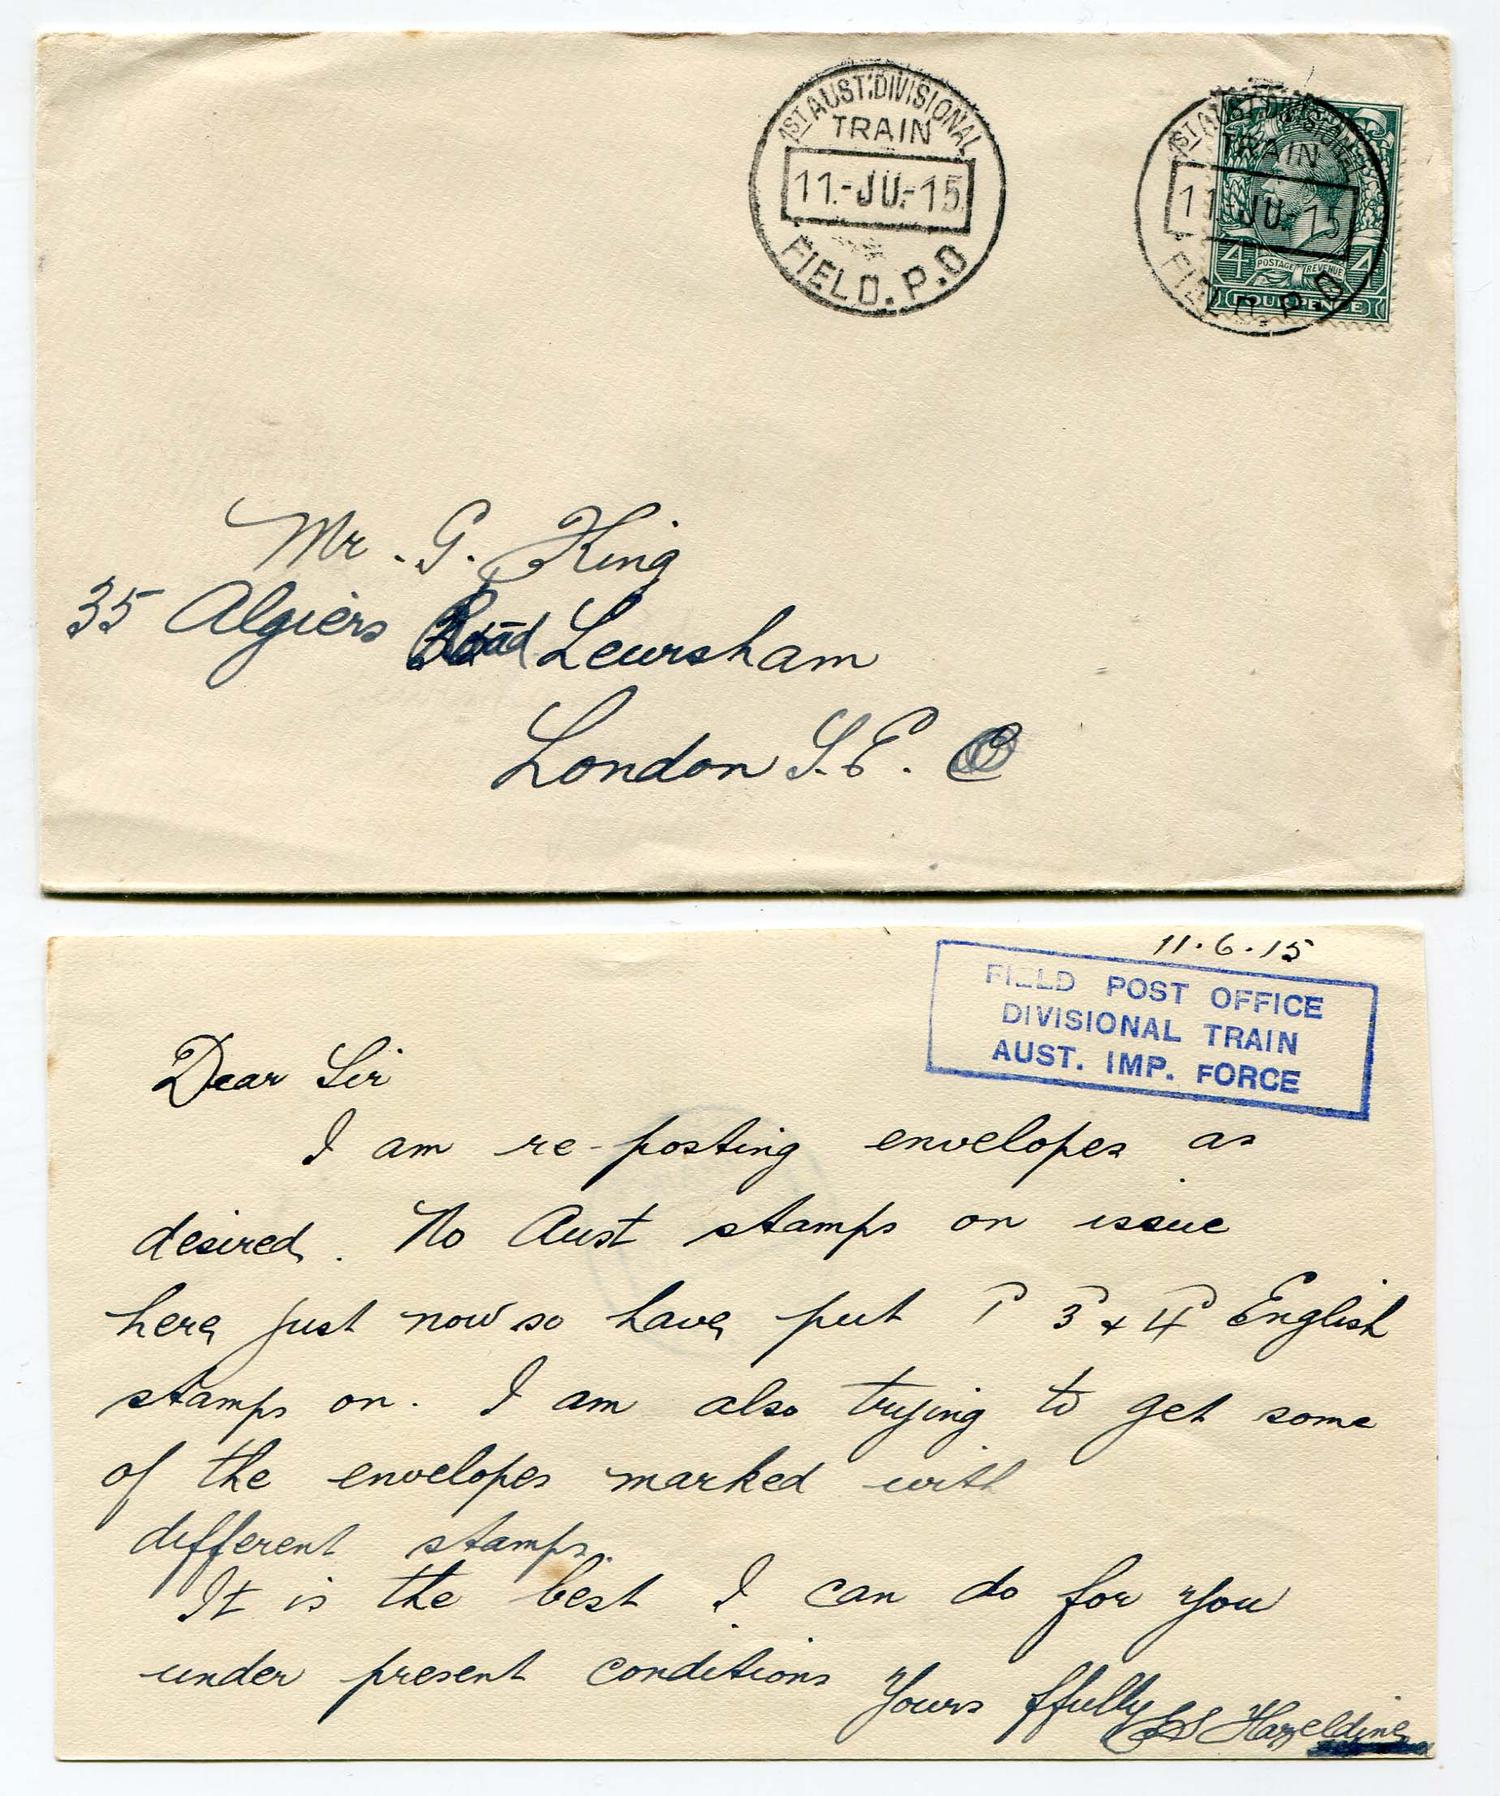 1ST AUST. DIVISIONAL
TRAIN
11.-JU.-15.
FIELD. P.O
1ST AUST. DIVISIONAL
TRAIN
11 JU.-15
FIELD. P.O
4 POSTAGE REVENUE 4
FOURPENCE
Mr. G. King
35 Algiers Road Leursham
London S.E.
11.6.15
FIELD POST OFFICE
DIVISIONAL TRAIN
AUST. IMP. FORCE
Dear Sir
I am re-posting envelopes as
desired. No Aust stamps on issue
here just now so have put 1 3 & 4 English
stamps on. I am also trying to get some
of the envelopes marked with
different stamps.
It is the best I can do for you
under present conditions
Yours ffully
S Hazeldine